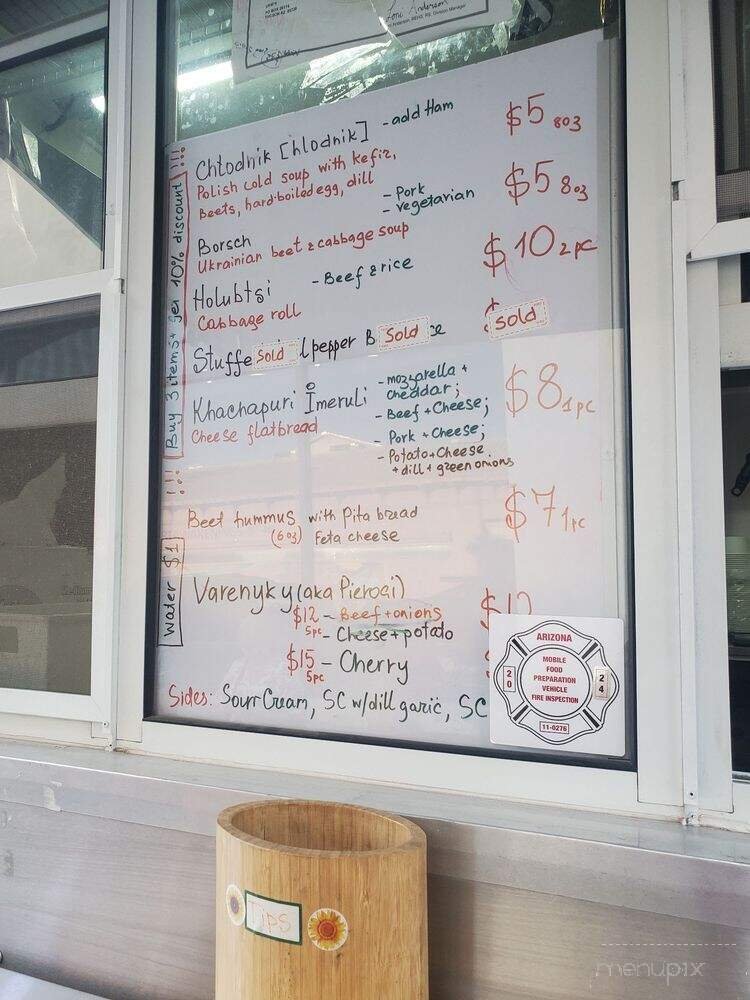 Lori Anderson
Chłodnik [hlodnik] - add Ham $5 8oz
Polish cold soup with kefir,
Beets, hard-boiled egg, dill
- Pork $5 8oz
- vegetarian
Borsch
Ukrainian beet & cabbage soup
$10 2pc
Holubtsi - Beef & rice
Cabbage roll
$ Sold
Stuffe Sold l pepper B Sold ce
Khachapuri Imeruli - mozzarella + cheddar; $8 1pc
Cheese flatbread
- Beef + Cheese;
- Pork + Cheese;
- Potato + Cheese
+ dill + green onions
Beet hummus with Pita bread $7 1pc
(6oz) Feta cheese
Varenyky (aka Pierogi)
$12 - Beef + onions $12
5pc - Cheese + potato
$15 - Cherry
5pc
Sides: Sour Cream, SC w/dill garic, SC
!!! Buy 3 items + get 10% discount !!!
Water $1
ARIZONA
MOBILE
FOOD
PREPARATION
VEHICLE
FIRE INSPECTION
20 24
11-0276
Tips
menupix